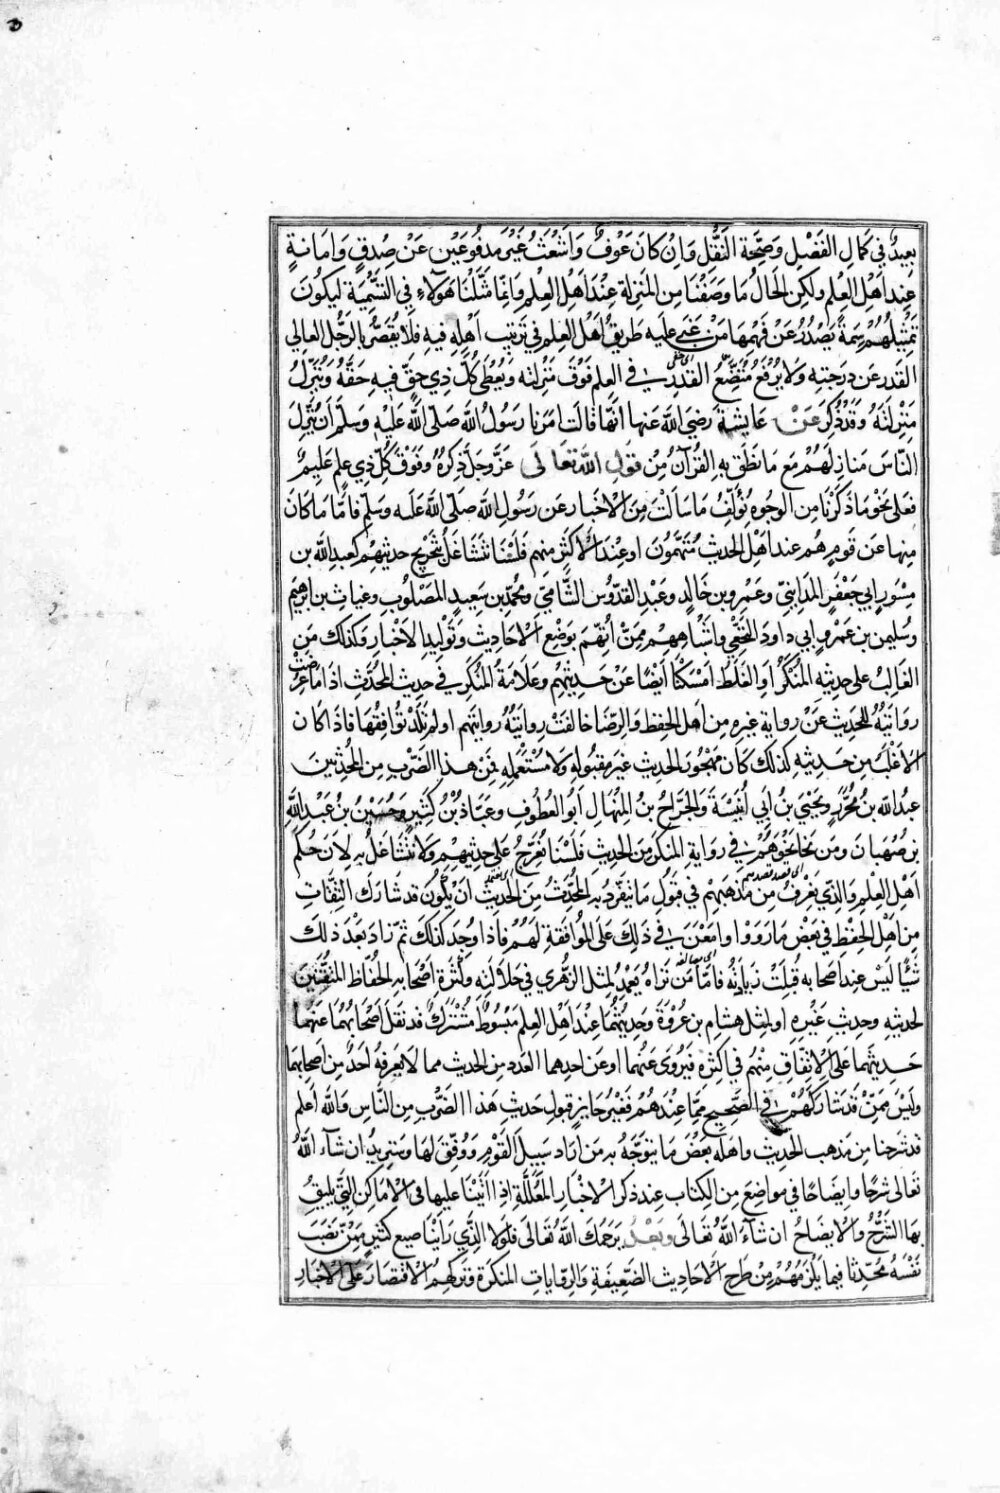 بعيدٌ في كمال الفضل وصحّة النّقل وان كان عوفٌ واشعثُ غيرَ مدفوعَيْن عن صدقٍ وامانةٍ
عند اهل العلم ولكن الحالُ ما وصفنا من المنزلة عند اهل العلم وانّما مثّلنا هؤلاء في التسمية ليكون
تمثيلهم سمةً يصدر عن فهمها من غبي عليه طريق اهل العلم في ترتيب اهله فيه فلا يقصّر بالرّجل العالي
القدر عن درجته ولا يُرفع متّضعُ القدر في العلم فوق منزلته ويُعطى كلّ ذي حقّ فيه حقّه وينزّل
منزلته وقد ذُكر عن عايشة رضي الله عنها انّها قالت امرنا رسول الله صلّى الله عليه وسلّم ان ننزّل
النّاس منازلهم مع ما نطق به القرآن من قول الله تعالى عزّ وجلّ ذكره وفوق كلّ ذي علم عليمٌ
فعلى نحو ما ذكرنا من الوجوه نؤلّف ما سألت من الاخبار عن رسول الله صلّى الله عليه وسلّم فامّا ما كان
منها عن قوم هم عند اهل الحديث متّهمون او عند الاكثر منهم فلسنا نتشاغل بتخريج حديثهم كعبد الله بن
مسور ابي جعفر المدايني وعمرو بن خالد وعبد القدّوس الشّامي ومحمّد بن سعيد المصلوب وغياث بن ابرهيم
وسليمن بن عمرو ابي داود النخعي واشباههم ممن اتّهم بوضع الاحاديث وتوليد الاخبار وكذلك من
الغالب على حديثه المنكر او الغلط امسكنا ايضًا عن حديثهم وعلامة المنكر في حديث المحدّث اذا ما عرضت
روايته للحديث عن رواية غيره من اهل الحفظ والرّضا خالفت روايتُه روايتهم او لم تكد توافقها فاذا كان
الاغلب من حديثه كذلك كان مهجور الحديث غير مقبوله ولا مستعمله فمن هذا الضرب من المحدثين
عبد الله بن محرّر ويحيى بن ابي أنيسة والجرّاح بن المنهال ابو العطوف وعبّاد بن كثير وحسين بن عبد الله
بن ضميرة وعمر بن صهبان ومن نحا نحوهم في رواية المنكر من الحديث فلسنا نعرّج على حديثهم ولا نتشاغل به لان حكم
اهل العلم والذي يعرف من مذهبهم في قبول ما يتفرّد به المحدّث من الحديث ان يكون قد شارك الثقات
من اهل الحفظ في بعض ما رووا وامعن في ذلك على الموافقة لهم فاذا وجد كذلك ثم زاد بعد ذلك
شيًا ليس عند اصحابه قُبلت زيادته فامّا من تراه يعمد لمثل الزّهري في جلالته وكثرة اصحابه الحفّاظ المتقنين
لحديثه وحديث غيره او لمثل هشام بن عروة وحديثهما عند اهل العلم مبسوطٌ مشتركٌ قد نقل اصحابهما عنهما
حديثهما على الاتّفاق منهم في اكثره فيروى عنهما او عن احدهما العدد من الحديث مما لا يعرفه احد من اصحابهما
وليس ممّن قد شاركهم في الصّحيح ممّا عندهم فغير جايزٍ قبول حديث هذا الضّرب من النّاس والله اعلم
قد شرحنا من مذهب الحديث واهله بعض ما يتوجّه به من اراد سبيل القوم ووفّق لها وسنزيد ان شآء الله
تعالى شرحا وايضاحا في مواضع من الكتاب عند ذكر الاخبار المعلّلة اذا اتينا عليها في الاماكن التي يليق
بها الشّرح والايضاح ان شآء الله تعالى وبعد يرحمك الله تعالى فلولا الذي رأينا من سوء صنيع كثير ممّن نصب
نفسه محدّثا فيما يلزمهم من طرح الاحاديث الضّعيفة والرّوايات المنكرة وتركهم الاقتصار على الاخبار